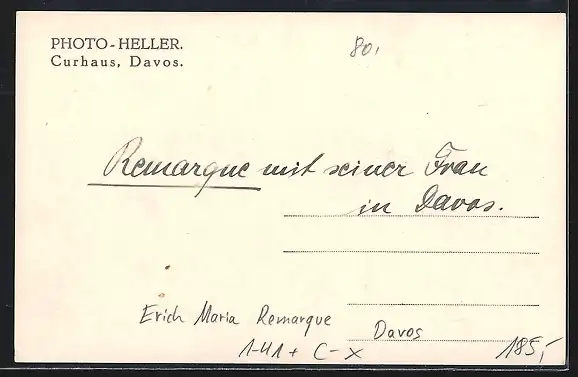 PHOTO-HELLER.
Curhaus, Davos.
80,
Remarque mit seiner Frau
in Davos.
Erich Maria Remarque
Davos
1-41 + C-X
185,-